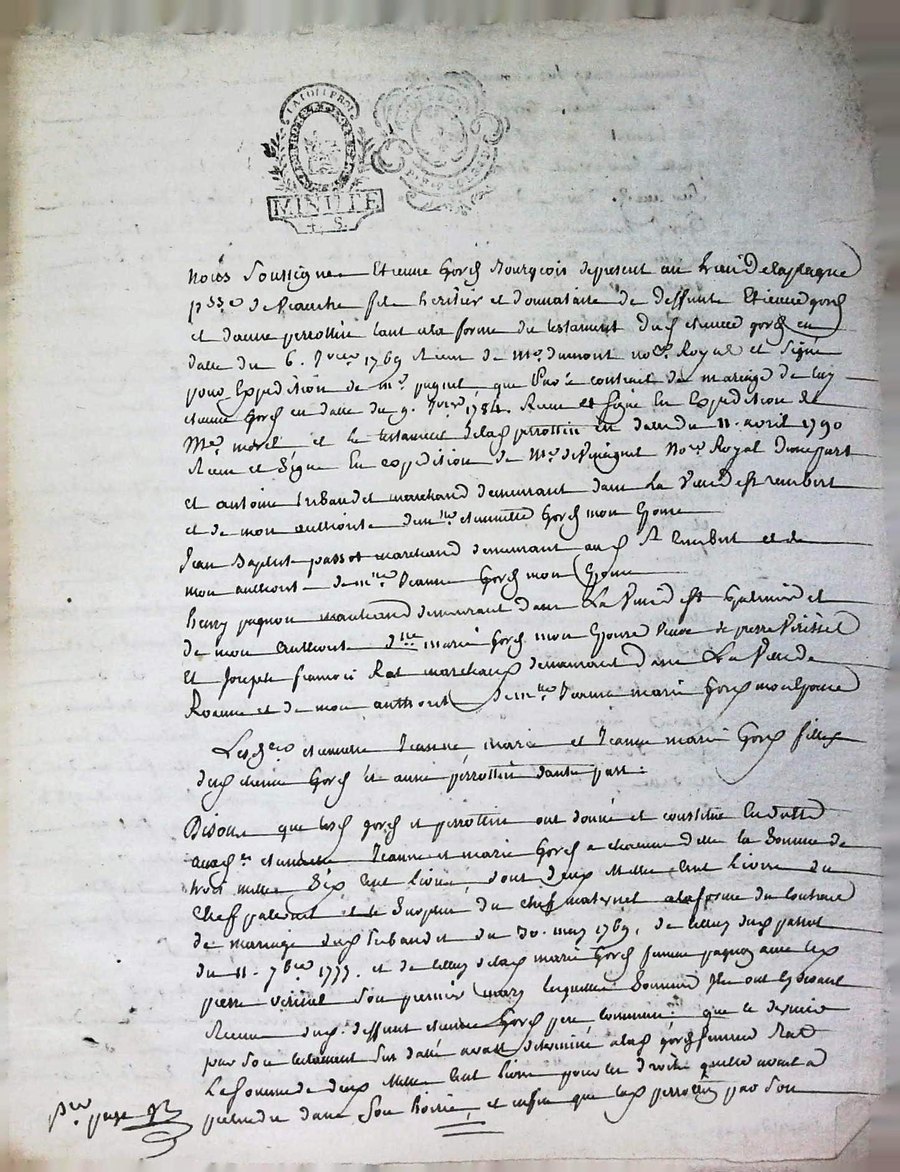 LA LOI
MINUTE
4. S.
nous soussignes Etienne Gorch Bourgeois depresent au lieu delaplagne
psse de veauche fils heritier et donnataire de deffunts Etienne gorch
et danne perrottin tant ala forme du testament dud etienne gorch en
datte du 6. 1769 Recu de Me dumont nore Royal et signé
pour Expedition de Me que par le contract de mariage de luy
etienne Gorch en datte du 9. 1784. Recu et signé En Expedition de
Me morel et le testament delad perrottin en datte du 11. avril 1790
Recu et signé En expedition de Me Nore Royal dune part
et antoine tribaudet marchand demeurant dans La Ville de st rambert
et de mon authorité demlle etiennette Gorch mon Epouse
Jean Baptiste passot marchand demeurant aud St Rembert et de
mon authorité demlle Jeanne Gorch mon Epouse
henry pagnon marchand demeurant dans La Ville de st Galmier et
de mon authorité dlle marie Gorch mon Epouse veuve de pierre
Et Joseph francois Rat marchand demeurant dans La Ville de
Roanne et de mon authorité demlle Jeanne marie Gorch mon Epouse
Lesd etiennette Jeanne marie et Jeanne marie Gorch filles
dud etienne Gorch et anne perrottin dautre part
Disons que lesd gorch et perrottin ont donné et constitué en dotte
auxd etiennette Jeanne et marie Gorch a chacune delle la somme de
trois mille six cent livres, dont deux mille cent livres du
chef paternel et le surplus du chef maternel alaforme du contract
de mariage dud tribaudet du 30. may 1769, de celluy dud passot
du 11. 7bre 1777. et de celluy delad marie Gorch femme pagnon avec led
pierre son premier mary lesquelles sommes ils ont
Recu dud. deffunt etienne Gorch pere commun: que ce dernier
par son testament sus datté avait determiné alad gorch femme Rat
La somme de deux mille cent livres pour les droits quelle avait a
pretendre dans son hoirie, et enfin que lad perrottin par son
pre page